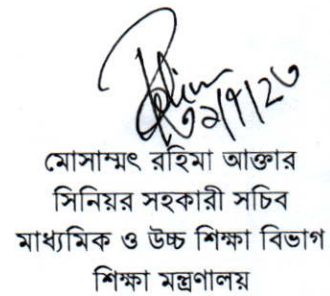 মোসাম্মৎ রহিমা আক্তার
সিনিয়র সহকারী সচিব
মাধ্যমিক ও উচ্চ শিক্ষা বিভাগ
শিক্ষা মন্ত্রণালয়